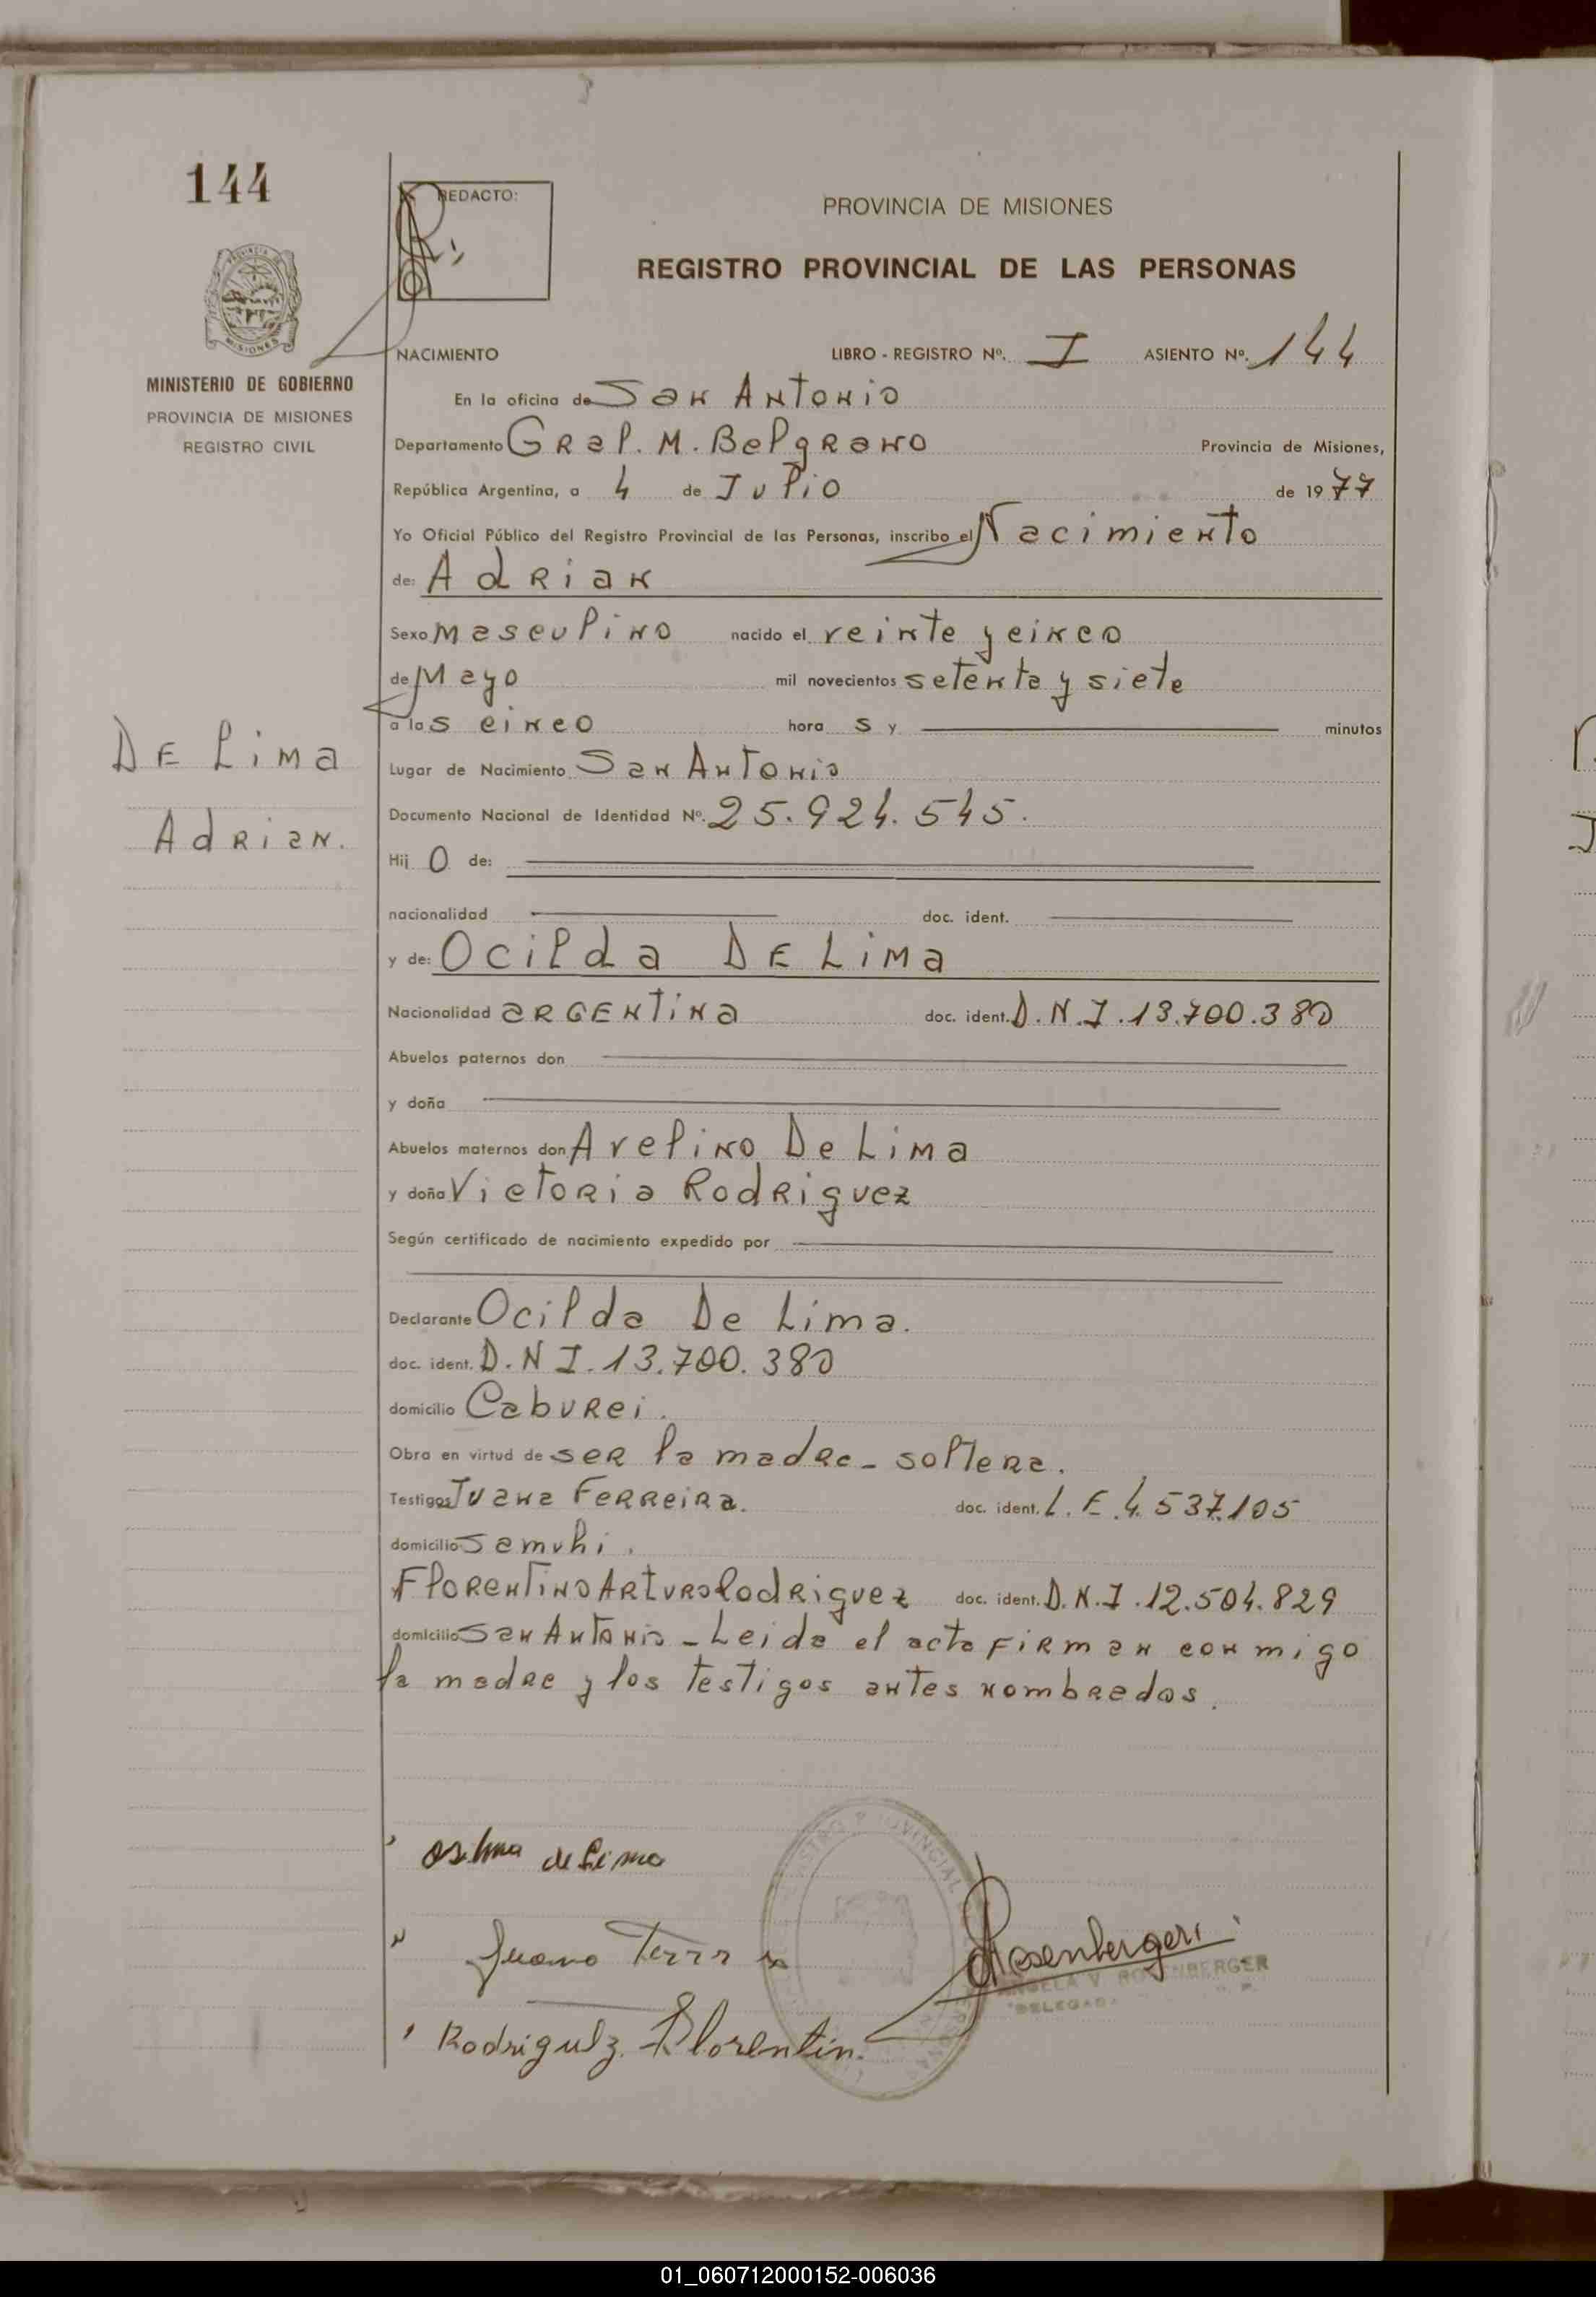 144
REDACTO:
PROVINCIA DE MISIONES
REGISTRO PROVINCIAL DE LAS PERSONAS
MISIONES
MINISTERIO DE GOBIERNO
PROVINCIA DE MISIONES
REGISTRO CIVIL
NACIMIENTO LIBRO - REGISTRO Nº. I ASIENTO Nº. 144
En la oficina de San Antonio
Departamento Gral. M. Belgrano Provincia de Misiones,
República Argentina, a 4 de Julio de 1977
Yo Oficial Público del Registro Provincial de las Personas, inscribo el Nacimiento
de: Adrian
Sexo masculino nacido el veinte y cinco
de Mayo mil novecientos setenta y siete
a las cinco hora s y minutos
De Lima
Adrian.
Lugar de Nacimiento San Antonio
Documento Nacional de Identidad Nº. 25.924.545.
Hij o de:
nacionalidad doc. ident.
y de: Ocilda De Lima
Nacionalidad argentina doc. ident. D.N.I.13.700.380
Abuelos paternos don
y doña
Abuelos maternos don Avelino De Lima
y doña Victoria Rodriguez
Según certificado de nacimiento expedido por
Declarante Ocilda De Lima.
doc. ident. D.N I.13.700.380
domicilio Caburei.
Obra en virtud de ser la madre - soltera.
Testigos Juana Ferreira. doc. ident. L.E.4.537.105
domicilio Samuhi.
Florentino Arturo Rodriguez doc. ident. D.N.I.12.504.829
domicilio San Antonio - Leida el acta firman conmigo
la madre y los testigos antes nombrados.
de Lima
Juana
Rosenberger
ANGELA V. ROSENBERGER
DELEGADA
Rodriguez Florentin.
REGISTRO PROVINCIAL
01_060712000152-006036